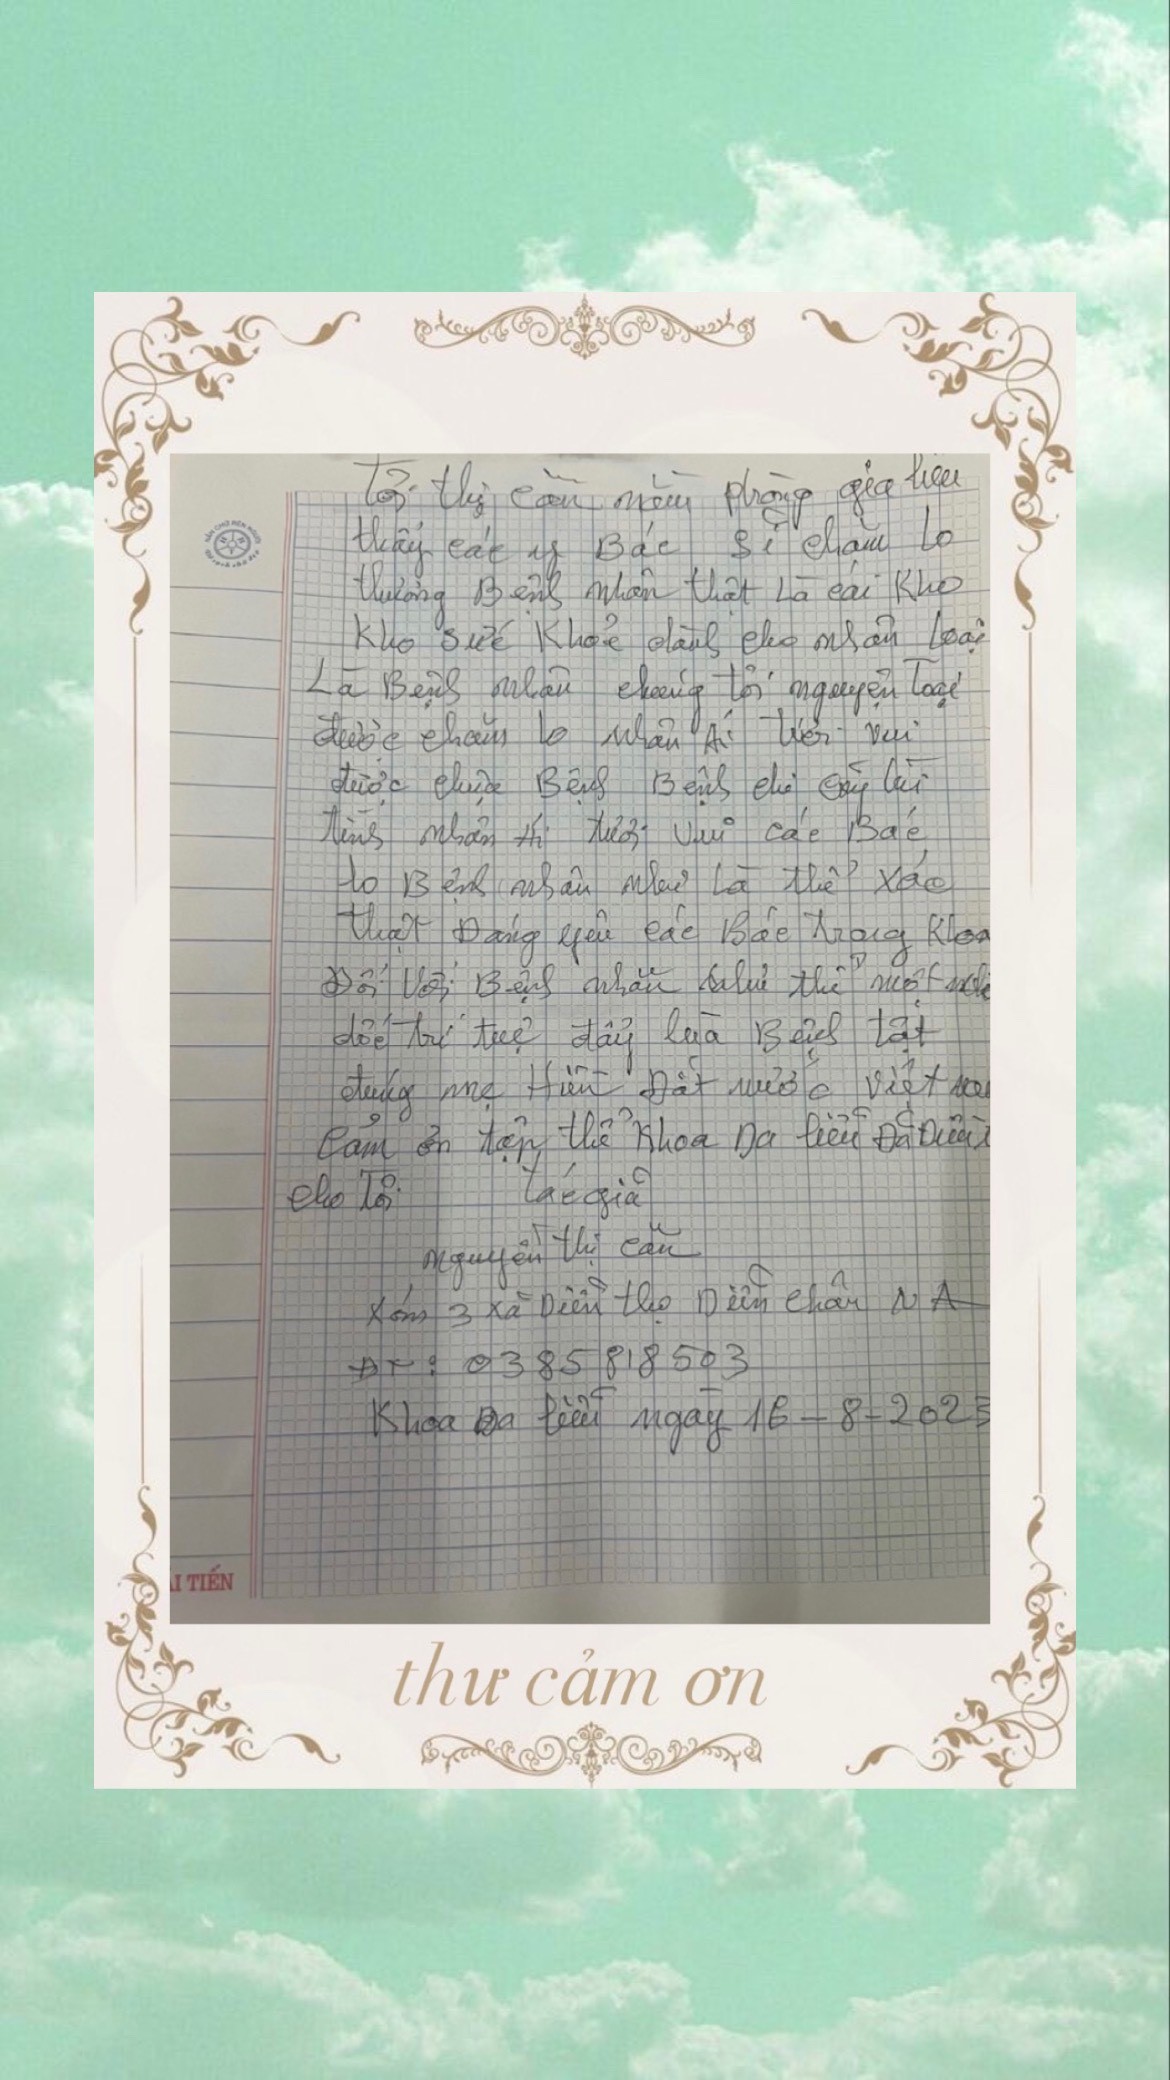 Tôi thị căn nằm phòng gia liễu
thấy các y Bác Sĩ chăm Lo
thương Bệnh nhân thật Là cái Kho
Kho Sức Khỏe dành cho nhân Loại
Là Bệnh nhân chúng tôi nguyện Toại
được chăm lo nhân Ái tươi vui
được chữa Bệnh Bệnh
tình nhân ái tươi vui các Bác
lo Bệnh nhân như Là thể xác
thật Đáng yêu các Bác trong Khoa
Đối Với Bệnh nhân như thể một
dốc trí tuệ đẩy lùa Bệnh tật
đúng mẹ Hiền Đất nước Việt
Cảm ơn tập thể Khoa Da liễu Đã Điều
cho Tôi tác giả
nguyễn thị căn
Xóm 3 xã Diễn thọ Diễn châu N A
ĐT: 0385818503
Khoa Da liễu ngày 16-8-2023
ẢI TIẾN
thư cảm ơn